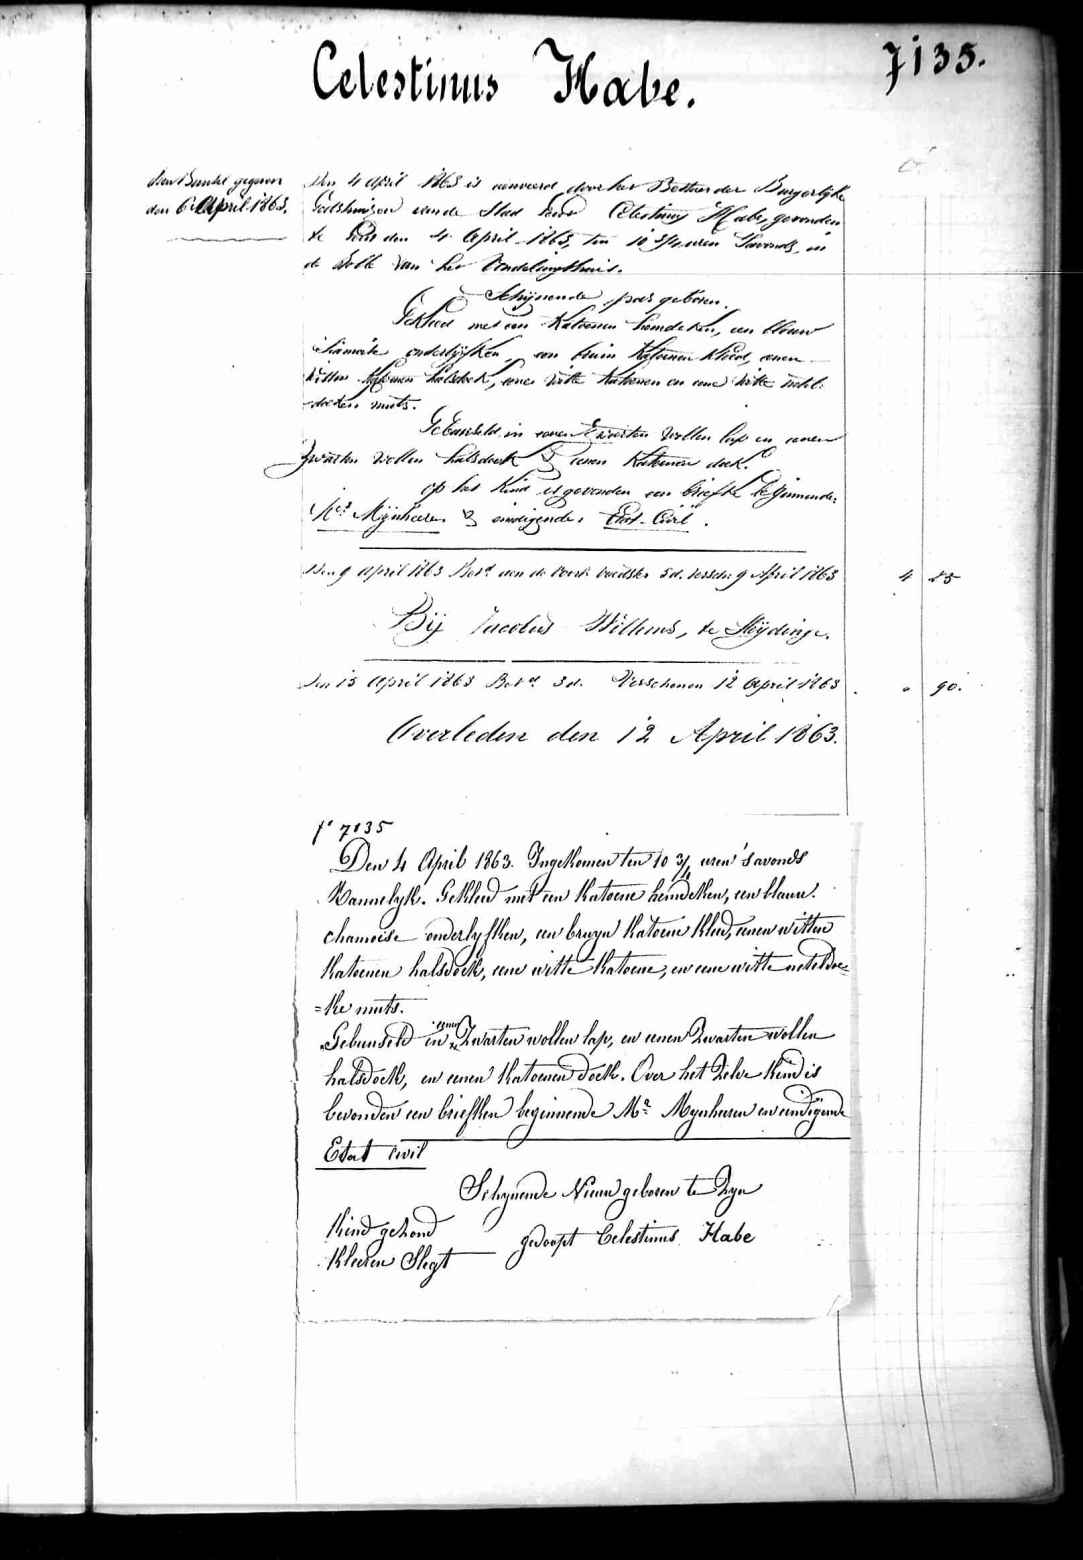 Celestinus Habe.
7135.
den 6 April 1863.
Den 4 April 1863 is aanveerd door het Bestier der Burgerlijke
Godshuizen van de Stad Celestinus Habe, gevonden
te den 4 April 1863, ten 10 3/4 uren 'savonds, in
de Rolle van het Vondelinghuis.
Schijnende pas geboren.
Gekleed met een Katoenen hemdeken, een blauw
Siamoise onderlijfken, een bruin Katoenen kleed, eenen
witten Katoenen halsdoek, eene witte Katoenen en eene witte netel-
doeken muts.
Gebunseld in eenen Zwarten wollen lap en eenen
Zwarten wollen halsdoek & eenen Katoenen doek.
op het Kind is gevonden een briefke beginnende:
Mr Mijnheeren & eindigende: Etat-Civil.
Den 9 April 1863 Bet.d aan de voedster 5 d. 9 April 1863
4 85
Bij Jacobus Willems, te Sleydinge.
Den 15 April 1863 Bet.d 3 d. Verschenen 12 April 1863
" 90.
Overleden den 12 April 1863.
f° 7135
Den 4 April 1863. Ingekomen ten 10 3/4 uren 'savonds
Mannelyk. Gekleed met een Katoene hemdeken, een blauw.
chamoise onderlyfken, een bruyn Katoene kleed, eenen witten
Katoenen halsdoek, eene witte Katoene, en eene witte neteldoe-
=ke muts.
Gebunseld in eenen Zwarten wollen lap, en eenen Zwarten wollen
halsdoek, en eenen Katoenen doek. Over het Zelve Kind is
bevonden een briefken beginnende Mr Mynheeren en eindigende
Etat civil
Schynende Nieuw geboren te Zyn
Kind gezond
gedoopt Celestinus Habe
Kleeren Slegt